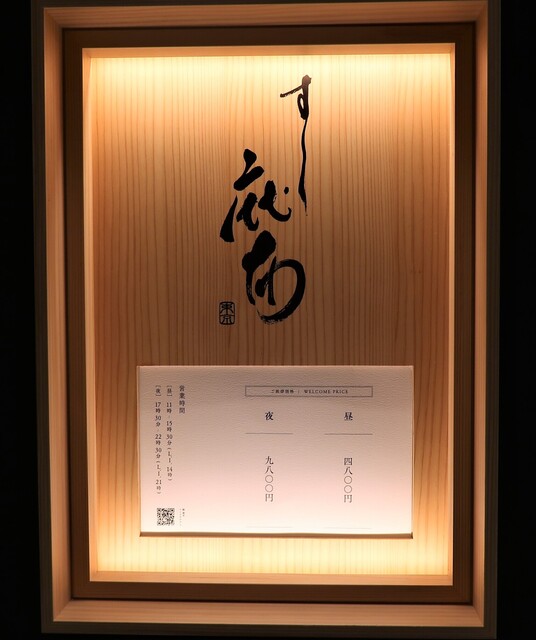 すし
麻布
東京
WELCOME PRICE
昼 四八〇〇円
夜 九八〇〇円
営業時間
[昼] 11時 - 15時30分 (L.I. 14時)
[夜] 17時30分 - 22時30分 (L.I. 21時)